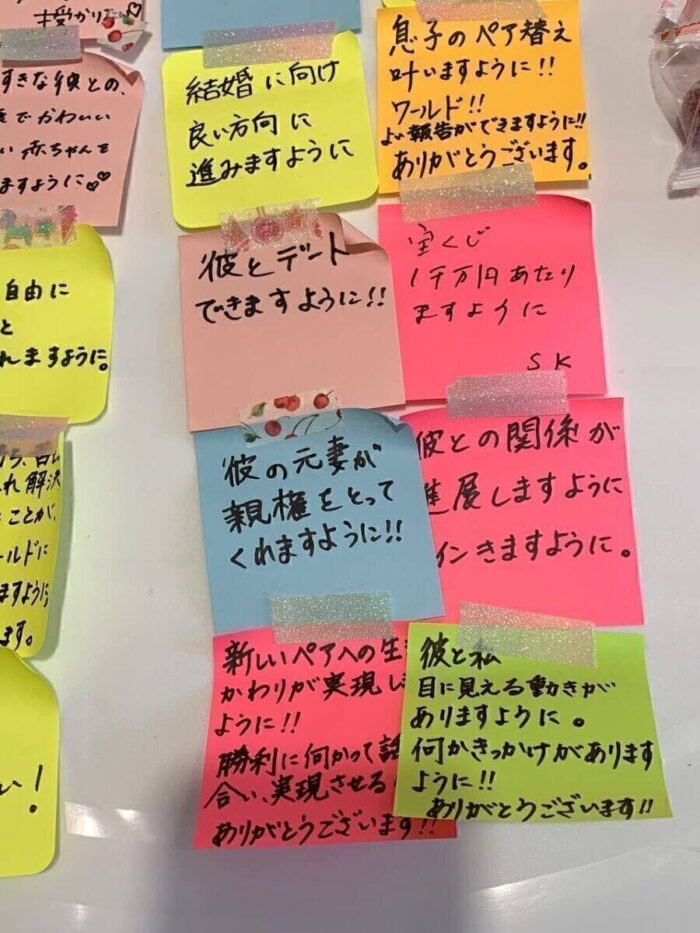 授かりたい♡
すきな彼との、
でかわいい
い赤ちゃんを
ますように♡♡
結婚に向け
良い方向に
進みますように
息子のペア替え
叶いますように!!
ワールド!!
よい報告ができますように!!
ありがとうございます。
自由に
と
れますように。
彼とデート
できますように!!
宝くじ
1千万円あたり
ますように
SK
れ解決
ことが、
ールドに
ますように。
ます。
彼の元妻が
親権をとって
くれますように!!
彼との関係が
進展しますように
インきますように。
新しいペアへの生
かわりが実現し
ように!!
勝利に向かって話
合い、実現させる
ありがとうございます!!
彼と私
目に見える動きが
ありますように。
何かきっかけがあります
ように!!
ありがとうございます!!
い!